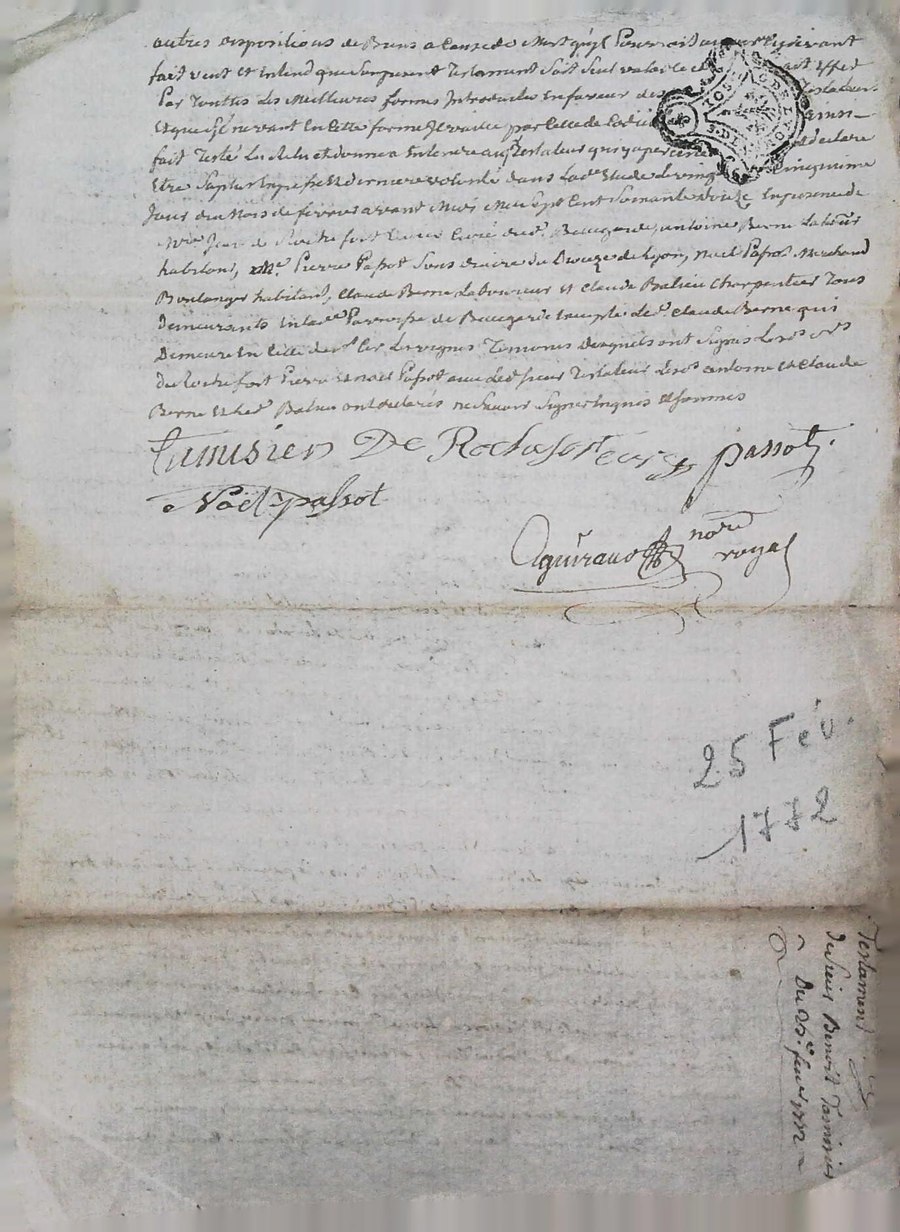 autres dispositions de Biens a Cause de Mort qu'il Pourroit avoir cy devant
fait veut et Entend que Son present Testament Soit Seul valable et ait Effet
Par Touttes Les Meilleures formes Introduites En faveur des Testateurs
Et que s'il ne vaut En Cette forme Il vaille par Celle de Codicille ainsi
fait Testé Lu Relu et donné a Entendre audt Testateur qui y a persisté et declaré
Etre Sa plus Expresse Et derniere volonté dans Lade Etude Le vingt Cinquieme
Jour du Mois de fevrier avant Midi Mil Sept Cent Soixante douze En presence de
Mre Jean de Rochefort Curé dudt Beauregard, antoine Berne Labour
habitant, Me Pierre Passot Sous diacre du Diocèze de Lyon, Noel Passot Marchand
Boulanger habitant, Claude Berne Laboureur Et Claude Balieu Charpentier Tous
Demeurants En lade Parroisse de Beauregard Excepté Ledt Claude Berne qui
Demeure En Celle de Les vignes Temoins Desquels ont Signés Lesds Srs
De Rochefort Pierre et Noel Passot avec Ledt Sieur Testateur Lesds antoine et Claude
Berne Et Ledt Balieu ont declarés ne Savoir Signer Enquis Et Sommés
Tumisien De Rochefort curé Passot
Noël Passot
Aguiraud nore
royal
25 Fév.
1772
Testament
du Sieur Benoit Tamisier
Du 25e fevr 1772